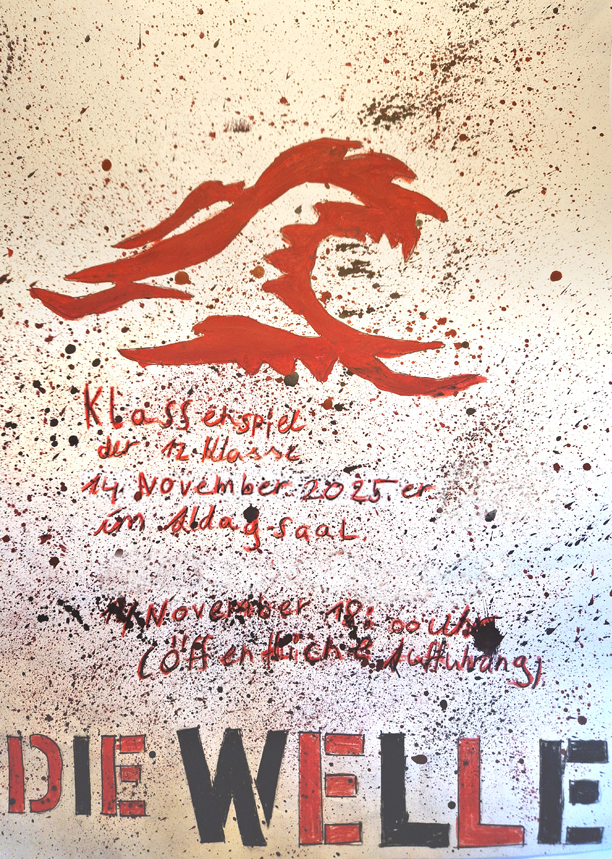 Klassenspiel
der 12. Klasse
14 November 2025 er
im Aldag-saal.
14 November 18:00 Uhr
(Öffentliche Aufführang)
DIE WELLE